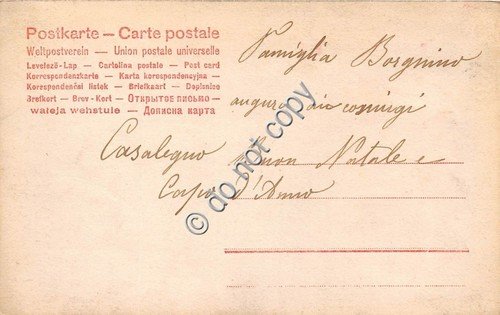 Postkarte – Carte postale
Weltpostverein — Union postale universelle
Levelező-Lap — Cartolina postale — Post card
Korrespondenzkarte — Karta korespondencyjna —
Korespondenční lístek — Briefkaart — Dopisnice
Brefkort — Brev-Kort — Открытое письмо —
waleja wehstule — Дописна карта
Famiglia Borgnino
auguri dai coniugi
Casalegno Buon Natale e
Capo d'Anno
© do not copy